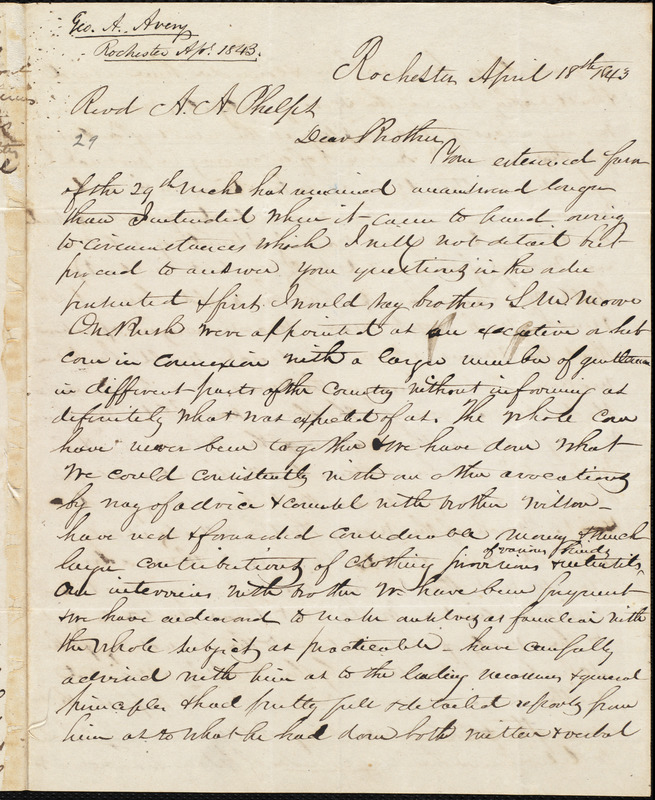 Geo. A. Avery
Rochester Apl. 1843.
Rochester April 18th 1843
Revd A. A. Phelps
29
Dear Brother
Your esteemed favor
of the 29th has remained unanswered longer
than I intended when it came to hand owing
to circumstances which I will not detail but
proceed to answer your questions in the order
presented & first I would say brothers L. M. Moore
O. N. Bush were appointed as an executive or sub
com in connexion with a larger number of gentlemen
in different parts of the Country without informing us
definitely what was expected of us. The whole com
have never been together & we have done what
we could consistently with our other avocations
by way of advice & counsel with brother Wilson -
have recd & forwarded considerable money & much
large contributions of clothing provisions & utensils
of various kinds
Our interviews with brother W. have been frequent
& we have endeavored to make ourselves as familiar with
the whole subject as practicable - have carefully
advised with him as to the leading measures & general
principles & had pretty full & detailed reports from
him as to what he had done both written & verbal